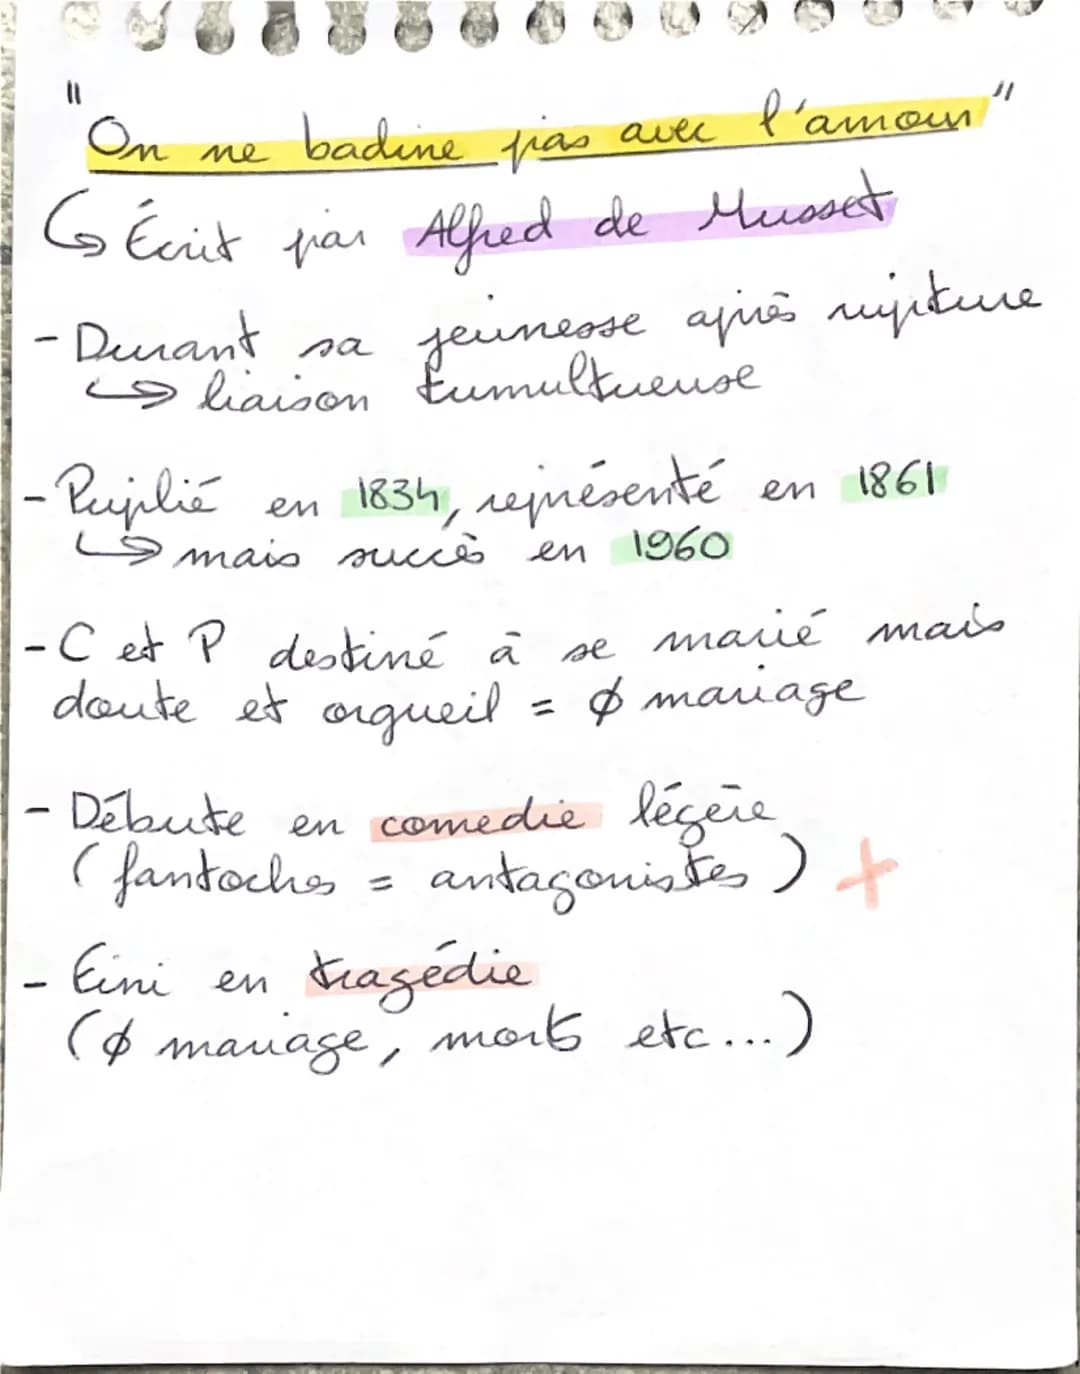 "On ne badine pas avec l'amour"
↪ Écrit par Alfred de Musset
- Durant sa jeunesse après rupture
↪ liaison tumultueuse
- Puplié en 1834, représenté en 1861
↪ mais succès en 1960
- C et P destiné à se marié mais
doute et orgueil = ∅ mariage
- Débute en comedie légère
(fantoches = antagonistes) +
- Fini en tragédie
(∅ mariage, morts etc...)